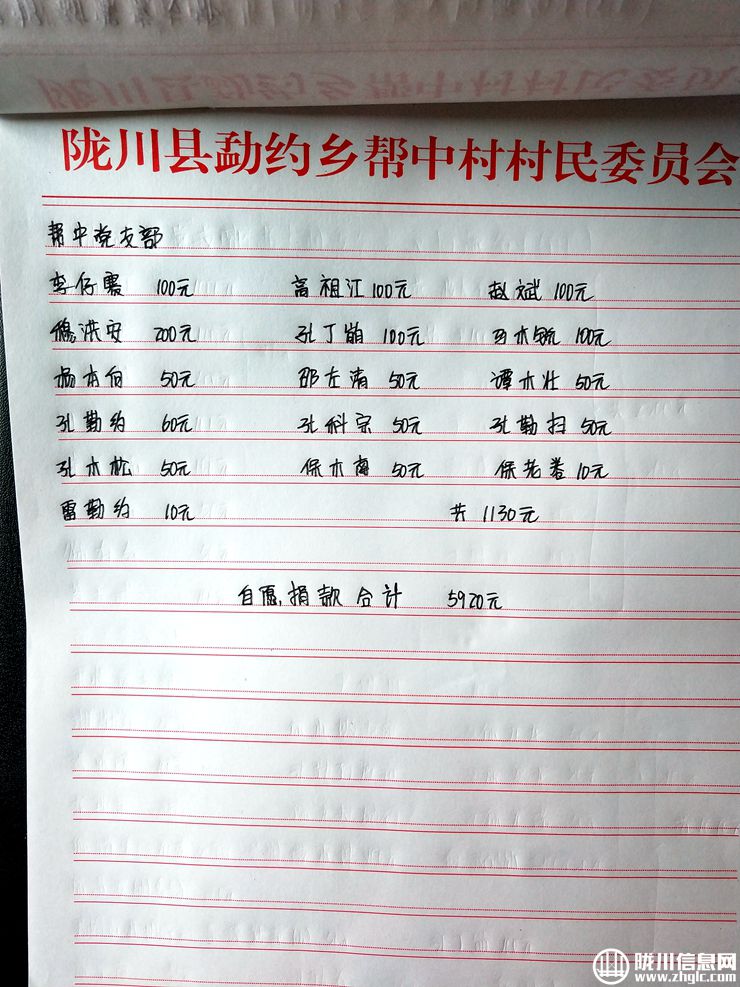 陇川县勐约乡帮中村村民委员会
帮中党支部
李仔震 100元 高祖江 100元 赵斌 100元
穆洪安 200元 孔丁 100元 100元
杨木向 50元 邵左清 50元 谭木壮 50元
孔勤约 60元 孔科宗 50元 孔勤扫 50元
孔木松 50元 保木南 50元 保老卷 10元
雷勤约 10元 共 1130元
自愿捐款合计 5920元
陇川信息网
www.zhglc.com